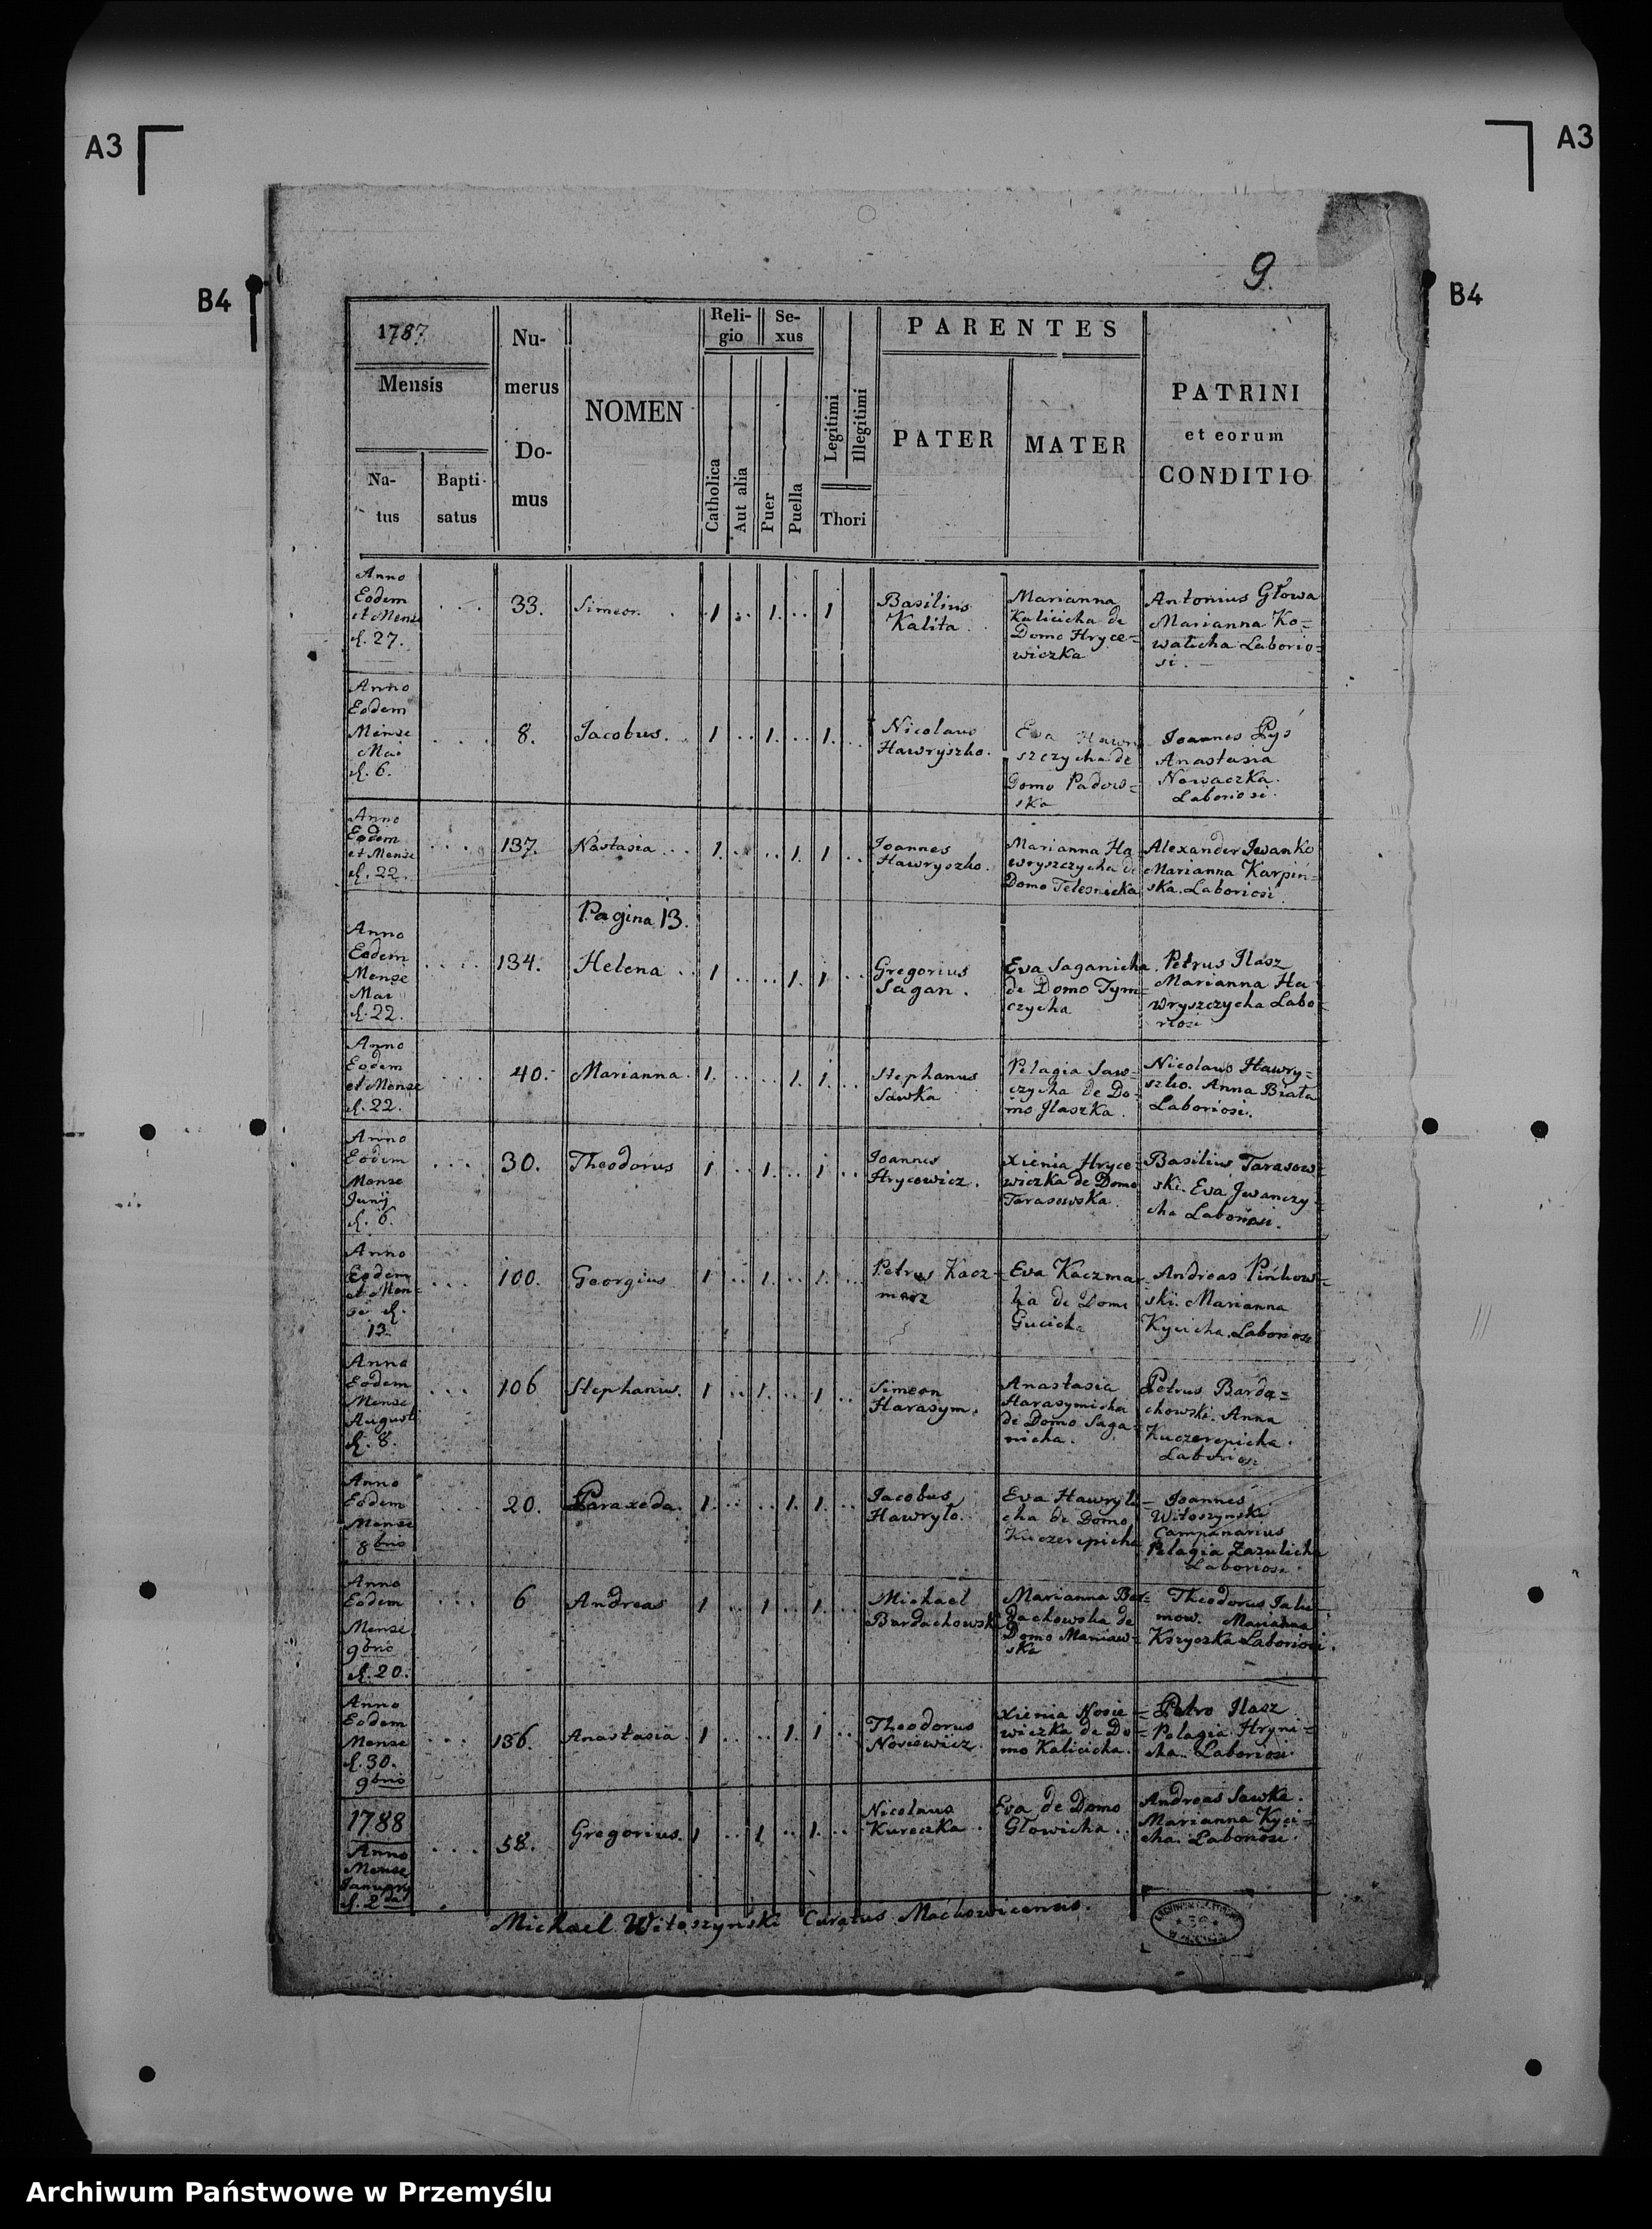 A3
A3
B4
B4
9.
1787
Mensis
Na-
tus
Bapti-
satus
Nu-
merus
Do-
mus
NOMEN
Reli-
gio
Catholica
Aut alia
Se-
xus
Puer
Puella
Legitimi
Illegitimi
Thori
PARENTES
PATER
MATER
PATRINI
et eorum
CONDITIO
Anno
Eodem
et Mense
d. 27.
33.
Simeon
1 1. 1
Basilius
Kalita
Marianna
Kalicicha de
Domo Hryce=
wiczka
Antonius Głowa
Marianna Ko=
walicha Laborio=
si.
Anno
Eodem
Mense
Mai
d. 6.
8.
Jacobus.
1 1. 1.
Nicolaus
Hawryszko.
Eva Hawry
szczycha de
Domo Padow=
ska
Joannes Pyś
Anastasia
Nowaczka.
Laboriosi.
Anno
Eodem
et Mense
d. 22.
137.
Nastasia
1. 1. 1
Joannes
Hawryszko.
Marianna Ha
wryszczycha de
Domo Telesnicka
Alexander Jwanko
Marianna Karpiń=
ska. Laboriosi.
Pagina 13.
Anno
Eodem
Mense
Mai
d. 22.
134.
Helena
1 1. 1
Gregorius
Sagan.
Eva Saganicha
de Domo Tym=
czycha
Petrus Jlasz
Marianna Ha
wryszczycha Labo
riosi
Anno
Eodem
et Mense
d. 22.
40.
Marianna.
1. 1. 1.
Stephanus
Sawka
Pelagia Saw=
czycha de Do=
mo Jlaszka.
Nicolaus Hawry=
szko. Anna Biała
Laboriosi.
Anno
Eodem
Mense
Junij
d. 6.
30.
Theodorus
1 1. 1
Joannes
Hrycewicz.
Xienia Hryce=
wiczka de Domo
Tarasowska.
Basilius Tarasow=
ski. Eva Jwanczy=
cha Laboriosi.
Anno
Eodem
et Men=
se d.
13.
100.
Georgius
1 1. 1.
Petrus Kacz=
marz
Eva Kaczmar
ka de Domo
Gucicha
Andreas Pińkow=
ski. Marianna
Kycicha. Laboriosi
Anno
Eodem
Mense
Augusti
d. 8.
106
Stephanus.
1 1. 1
Simeon
Harasym.
Anastasia
Harasymicha
de Domo Saga=
nicha.
Petrus Barda=
chowski. Anna
Kuczerepicha.
Laboriosi
Anno
Eodem
Mense
8brio
20.
Paraxeda.
1. 1. 1.
Jacobus
Hawryło.
Eva Hawryli=
cha de Domo
Kuczerepicha
Joannes
Witoszyński
Campanarius
Pelagia Zazulicha
Laboriosi.
Anno
Eodem
Mense
9brio
d. 20.
6
Andreas
1 1 1.
Michael
Bardachowski
Marianna Bar=
dachowska de
Domo Maniaw=
ska
Theodorus
mow. Marianna
Laboriosi.
Anno
Eodem
Mense
d. 30.
9brio
136.
Anastasia.
1 1. 1
Theodorus
Nosiewicz.
Xienia Nosie=
wiczka de Do=
mo Kalicicha.
Petro Jlasz
Pelagia Hryni=
cha. Laboriosi
1788
Anno
Mense
January
d. 2da
58.
Gregorius.
1 1 1.
Nicolaus
Kureczka.
Eva de Domo
Głowicha.
Andreas Sawka.
Marianna Kyci=
cha. Laboriosi.
Michael Witoszyński Curatus Machnovicensis.
Archiwum Państwowe w Przemyślu